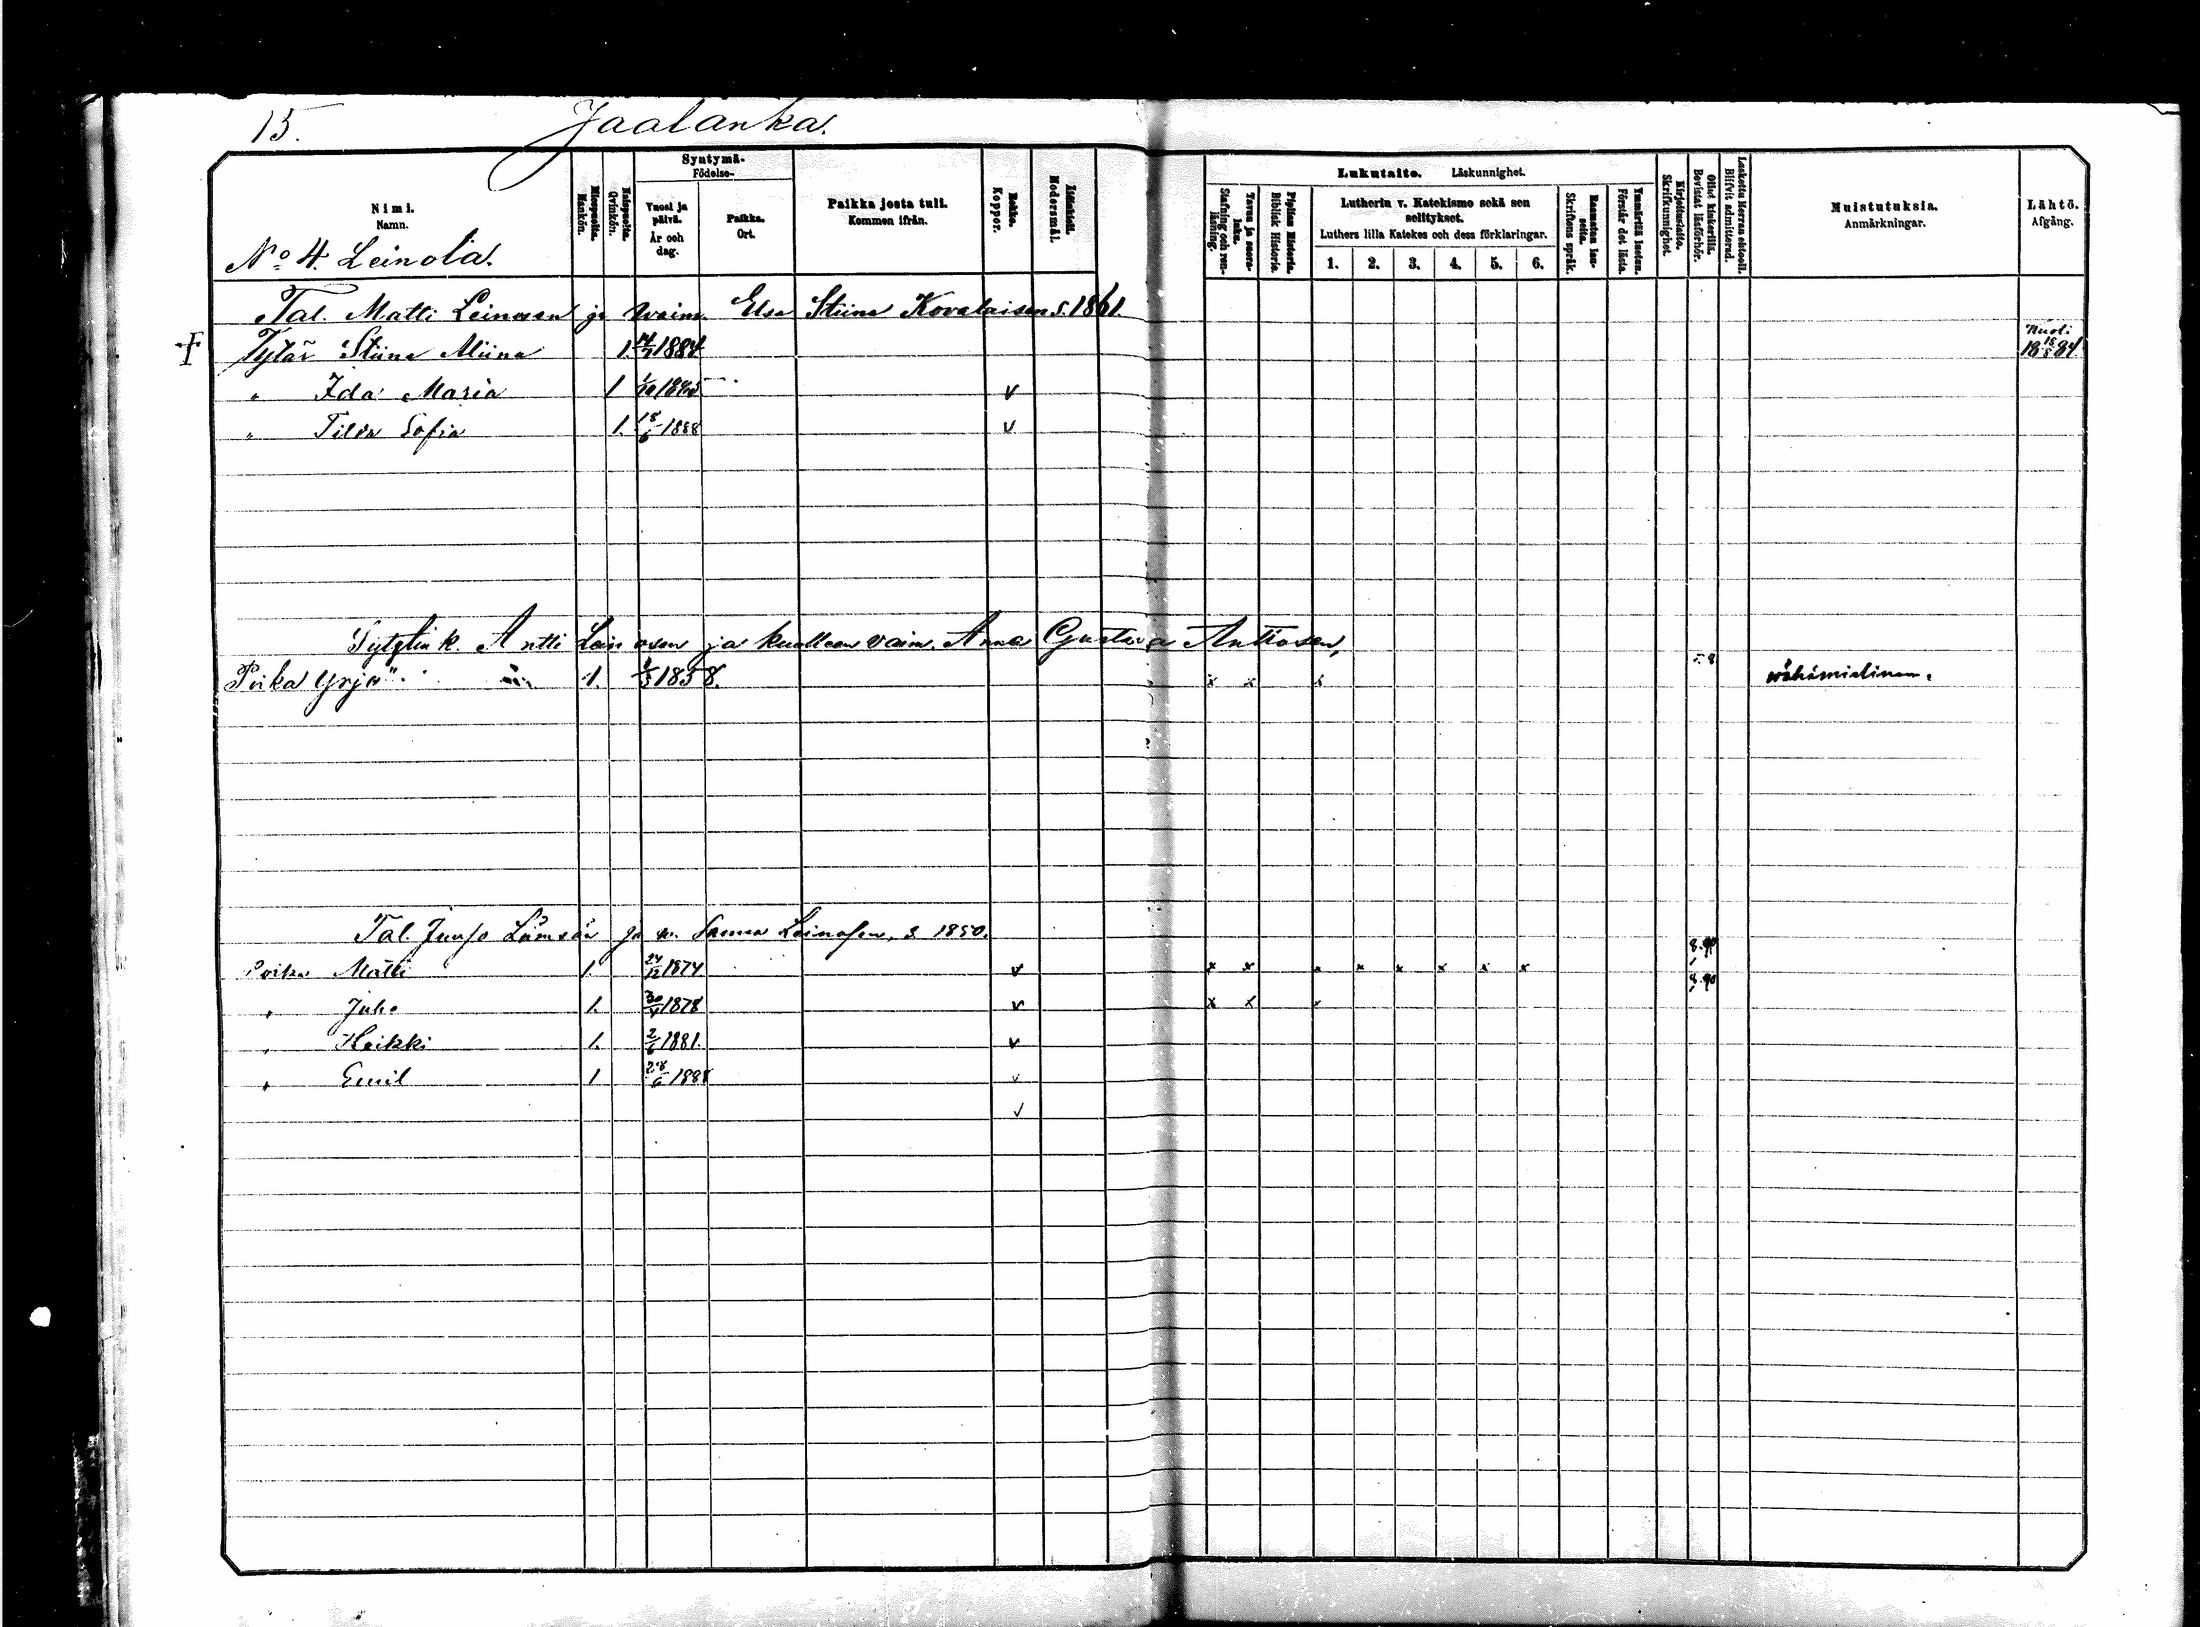 15. Jaalanka.
Nimi. Namn.
Miespuolia. Mankön.
Naispuolia. Qvinkön.
Syntymä- Födelse-
Vuosi ja päivä. År och dag.
Paikka. Ort.
Paikka josta tuli. Kommen ifrån.
Rokko. Koppor.
Äidinkieli. Modersmål.
Lukutaito. Läskunnighet.
Tavuu ja suora-luku. Stafning och ren-läsning.
Piplian Historia. Biblisk Historie.
Lutherin v. Katekismo sekä sen selitykset.
Luthers lilla Katekes och dess förklaringar.
1. 2. 3. 4. 5. 6.
Raamatun lau-seita. Skriftens språk.
Ymmärtää luetun. Förstår det lästa.
Kirjoitustaito. Skrifkunnighet.
Ollut kinkerillä. Bevistat läsförhör.
Laskettu Herran ehtooll. Blifvit admitterad.
Muistutuksia. Anmärkningar.
Lähtö. Afgång.
No 4. Leinola.
Tal. Matti Leinosen ja waim. Elsa Stiina Kovalaisen s. 1861.
Tytär Stiina Miina 1. 14/7 1884 Kuoli 18 18/8 84
" Ida Maria 1 1/10 1885 v
" Tilda Sofia 1. 18/6 1888 v
Sytytin k. Antti Leinosen ja kuolleen vaim. Anna Gustava Anttosen,
Poika Yrjö 1. 1/3 1858. x x x 8 vähämielinen.
Tal. Juuso Lämsän ja w. Sanna Leinosen, s 1850.
Poika Matti 1. 24/12 1874 v x x x x x x x x 8.90
" Juho 1. 30/4 1878 v x x x 8.90
" Heikki 1. 2/6 1881. v
" Emil 1 28/6 1888 v
v